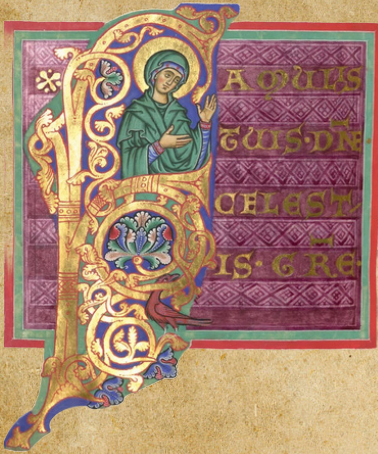 FAMULIS
TUIS·DN̄E
CELEST
IS·GR̄E·